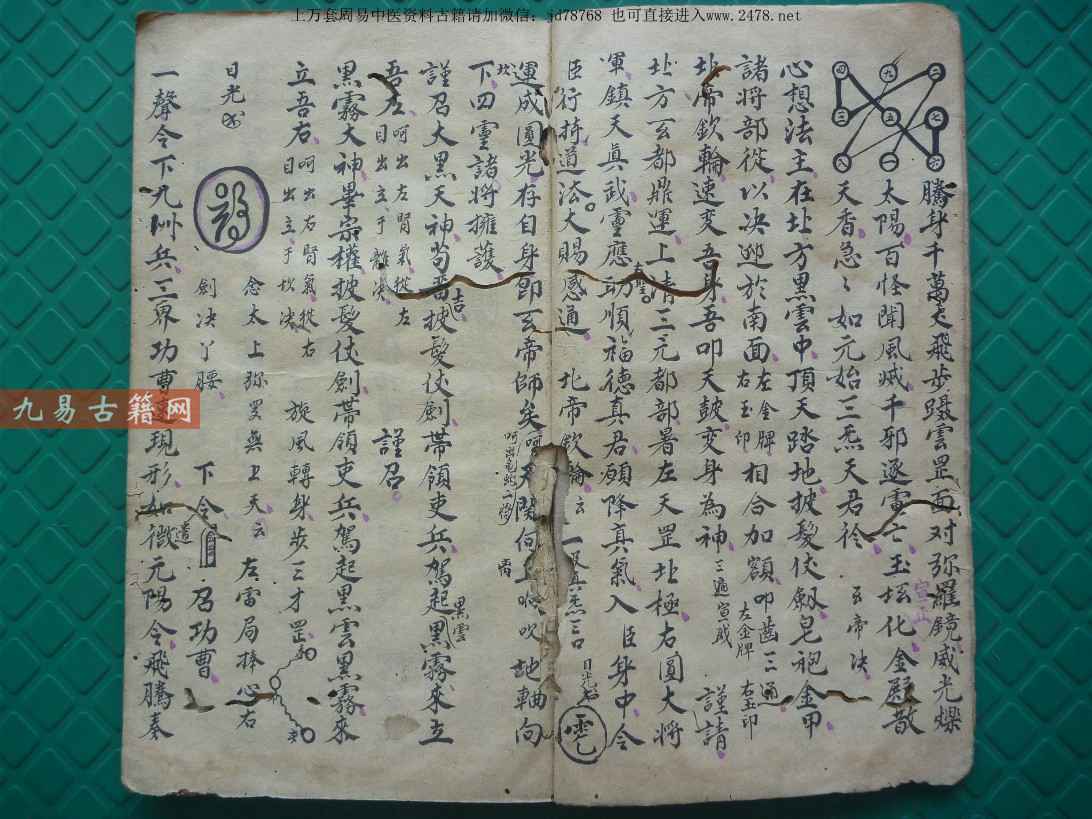 上万套周易中医资料古籍请加微信：jd78768 也可直接进入www.2478.net
四 九 二
三 五 七
八 一 六
騰身千萬丈飛步躡雲罡面对弥羅鏡威光爍
太陽百怪聞風滅千邪逐電亡玉垣化金殿散
天香急々如元始三炁天君衿 玄帝决
心想法主在北方黑雲中頂天踏地披髮仗劍皂袍金甲
諸將部從以决迎於南面左金牌右玉印相合加額叩齒三通左金牌右玉印
北帝欽輪速变吾身吾叩天鼓变身為神三遍宣咸 謹請
北方玄都鼎運上清三元都部署左天罡北極右圓大將
軍鎮天真武靈應助順福德真君願降真氣入臣身中令
臣行持道法大賜感通 北帝欽輪云 一 真炁三口 日光
運成圓光存自身即玄帝師矣 天関向上 吹 地軸向
下坎四靈諸將擁護
謹召大黑天神苟畱吉披髮仗劍帶領吏兵駕起黑雲黑霧來立
吾左呵出左腎氣從左目出立于離决 謹召
黑霧大神畢宗權披髮仗劍帶領吏兵駕起黑雲黑霧來
立吾右呵出右腎氣從右目出立于坎决 旋風轉身步三才罡
念太上弥罗無上天云 左雷局捧心右
日光 劍决丫腰 下令 召功曹
一聲令下九州兵三界功曹 現形如微遣元陽令飛騰奏
九易古籍网